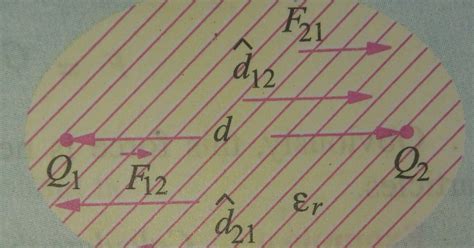 F₂₁
d̂₁₂
d
Q₁ F₁₂ Q₂
d̂₂₁ εᵣ